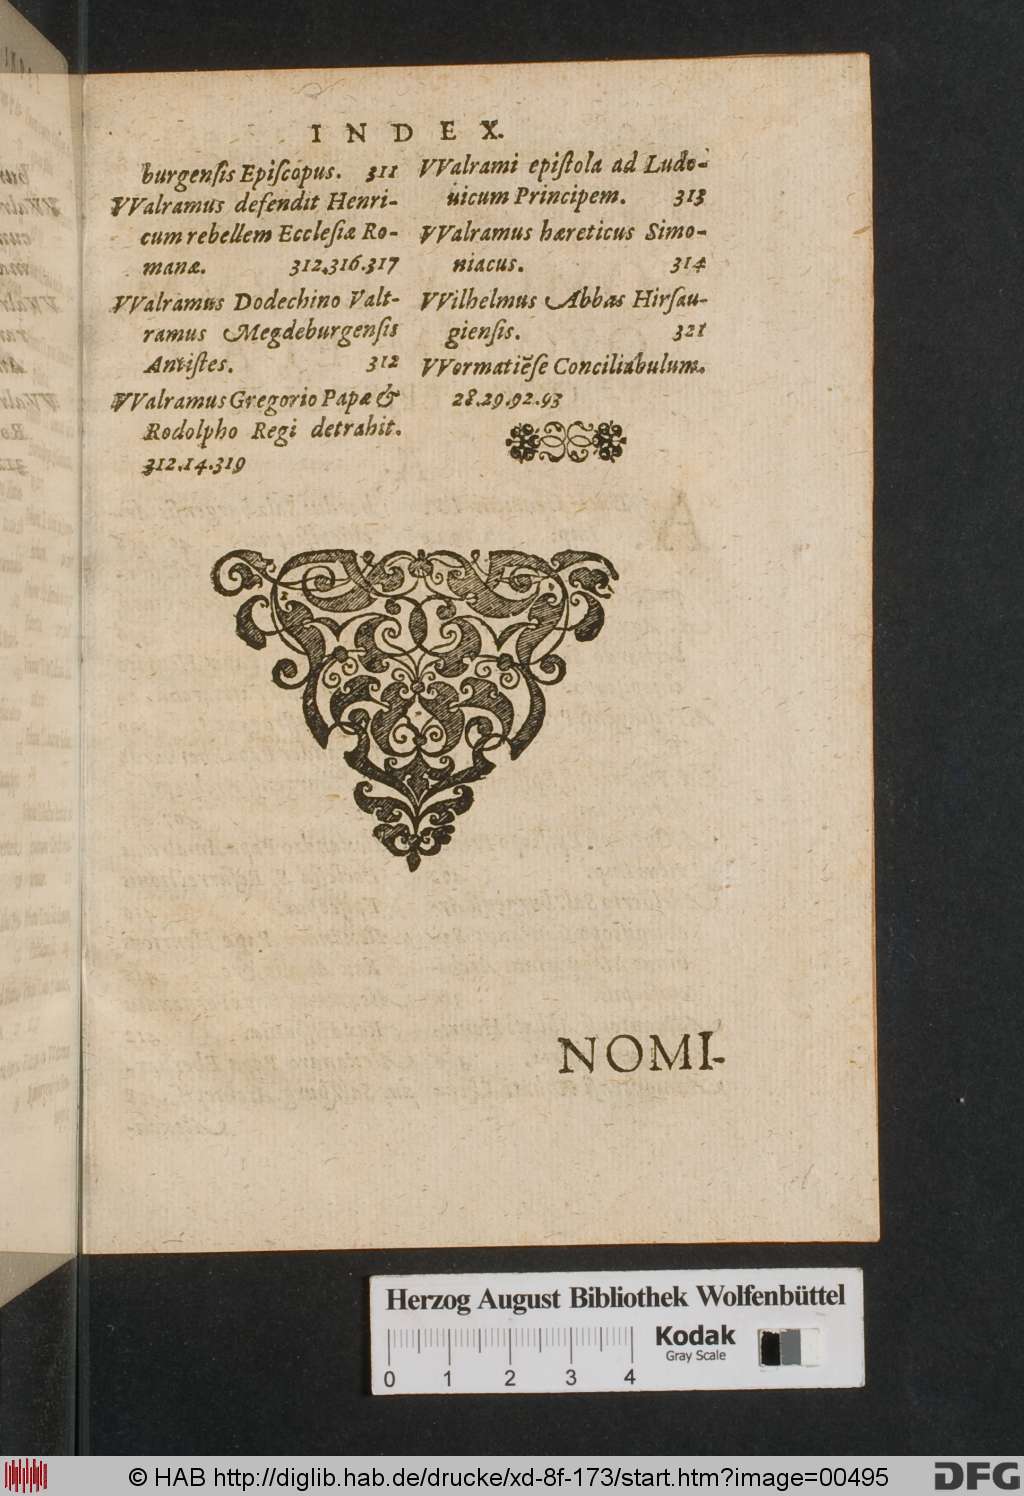 INDEX.
burgensis Episcopus. 311
VValramus defendit Henri-
cum rebellem Ecclesiæ Ro-
manæ. 312.316.317
VValramus Dodechino Valt-
ramus Megdeburgensis
Antistes. 312
VValramus Gregorio Papæ &
Rodolpho Regi detrahit.
312.14.319
VValrami epistola ad Ludo-
uicum Principem. 313
VValramus hæreticus Simo-
niacus. 314
VVilhelmus Abbas Hirsau-
giensis. 321
VVormatiẽse Conciliabulum.
28.29.92.93
NOMI-
Herzog August Bibliothek Wolfenbüttel
Kodak
Gray Scale
0 1 2 3 4
© HAB http://diglib.hab.de/drucke/xd-8f-173/start.htm?image=00495
DFG